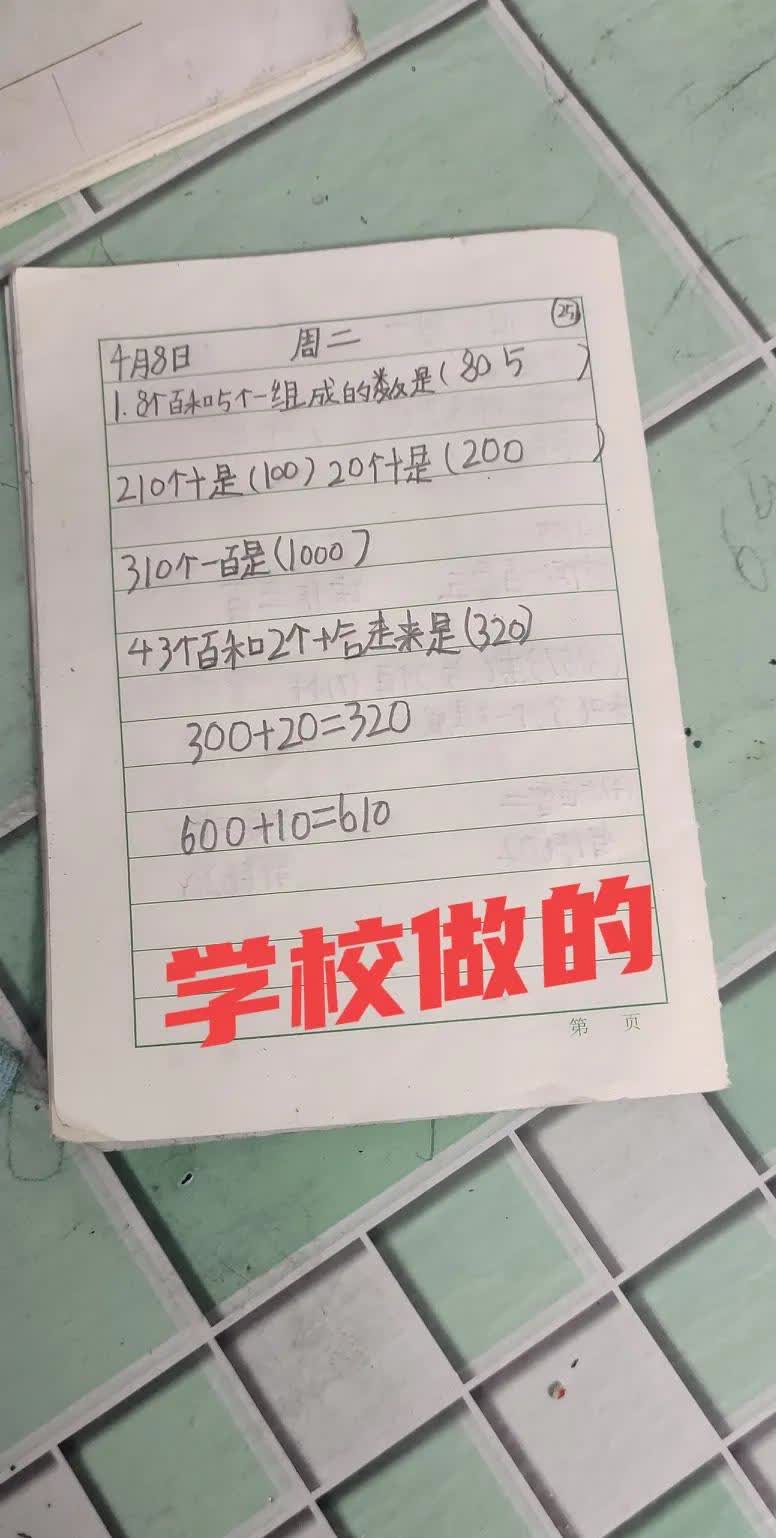 25
4月8日 周二
1.8个百和5个一组成的数是(805)
210个十是(100)20个十是(200)
310个一百是(1000)
43个百和2个十合起来是(320)
300+20=320
600+10=610
学校做的
第 页